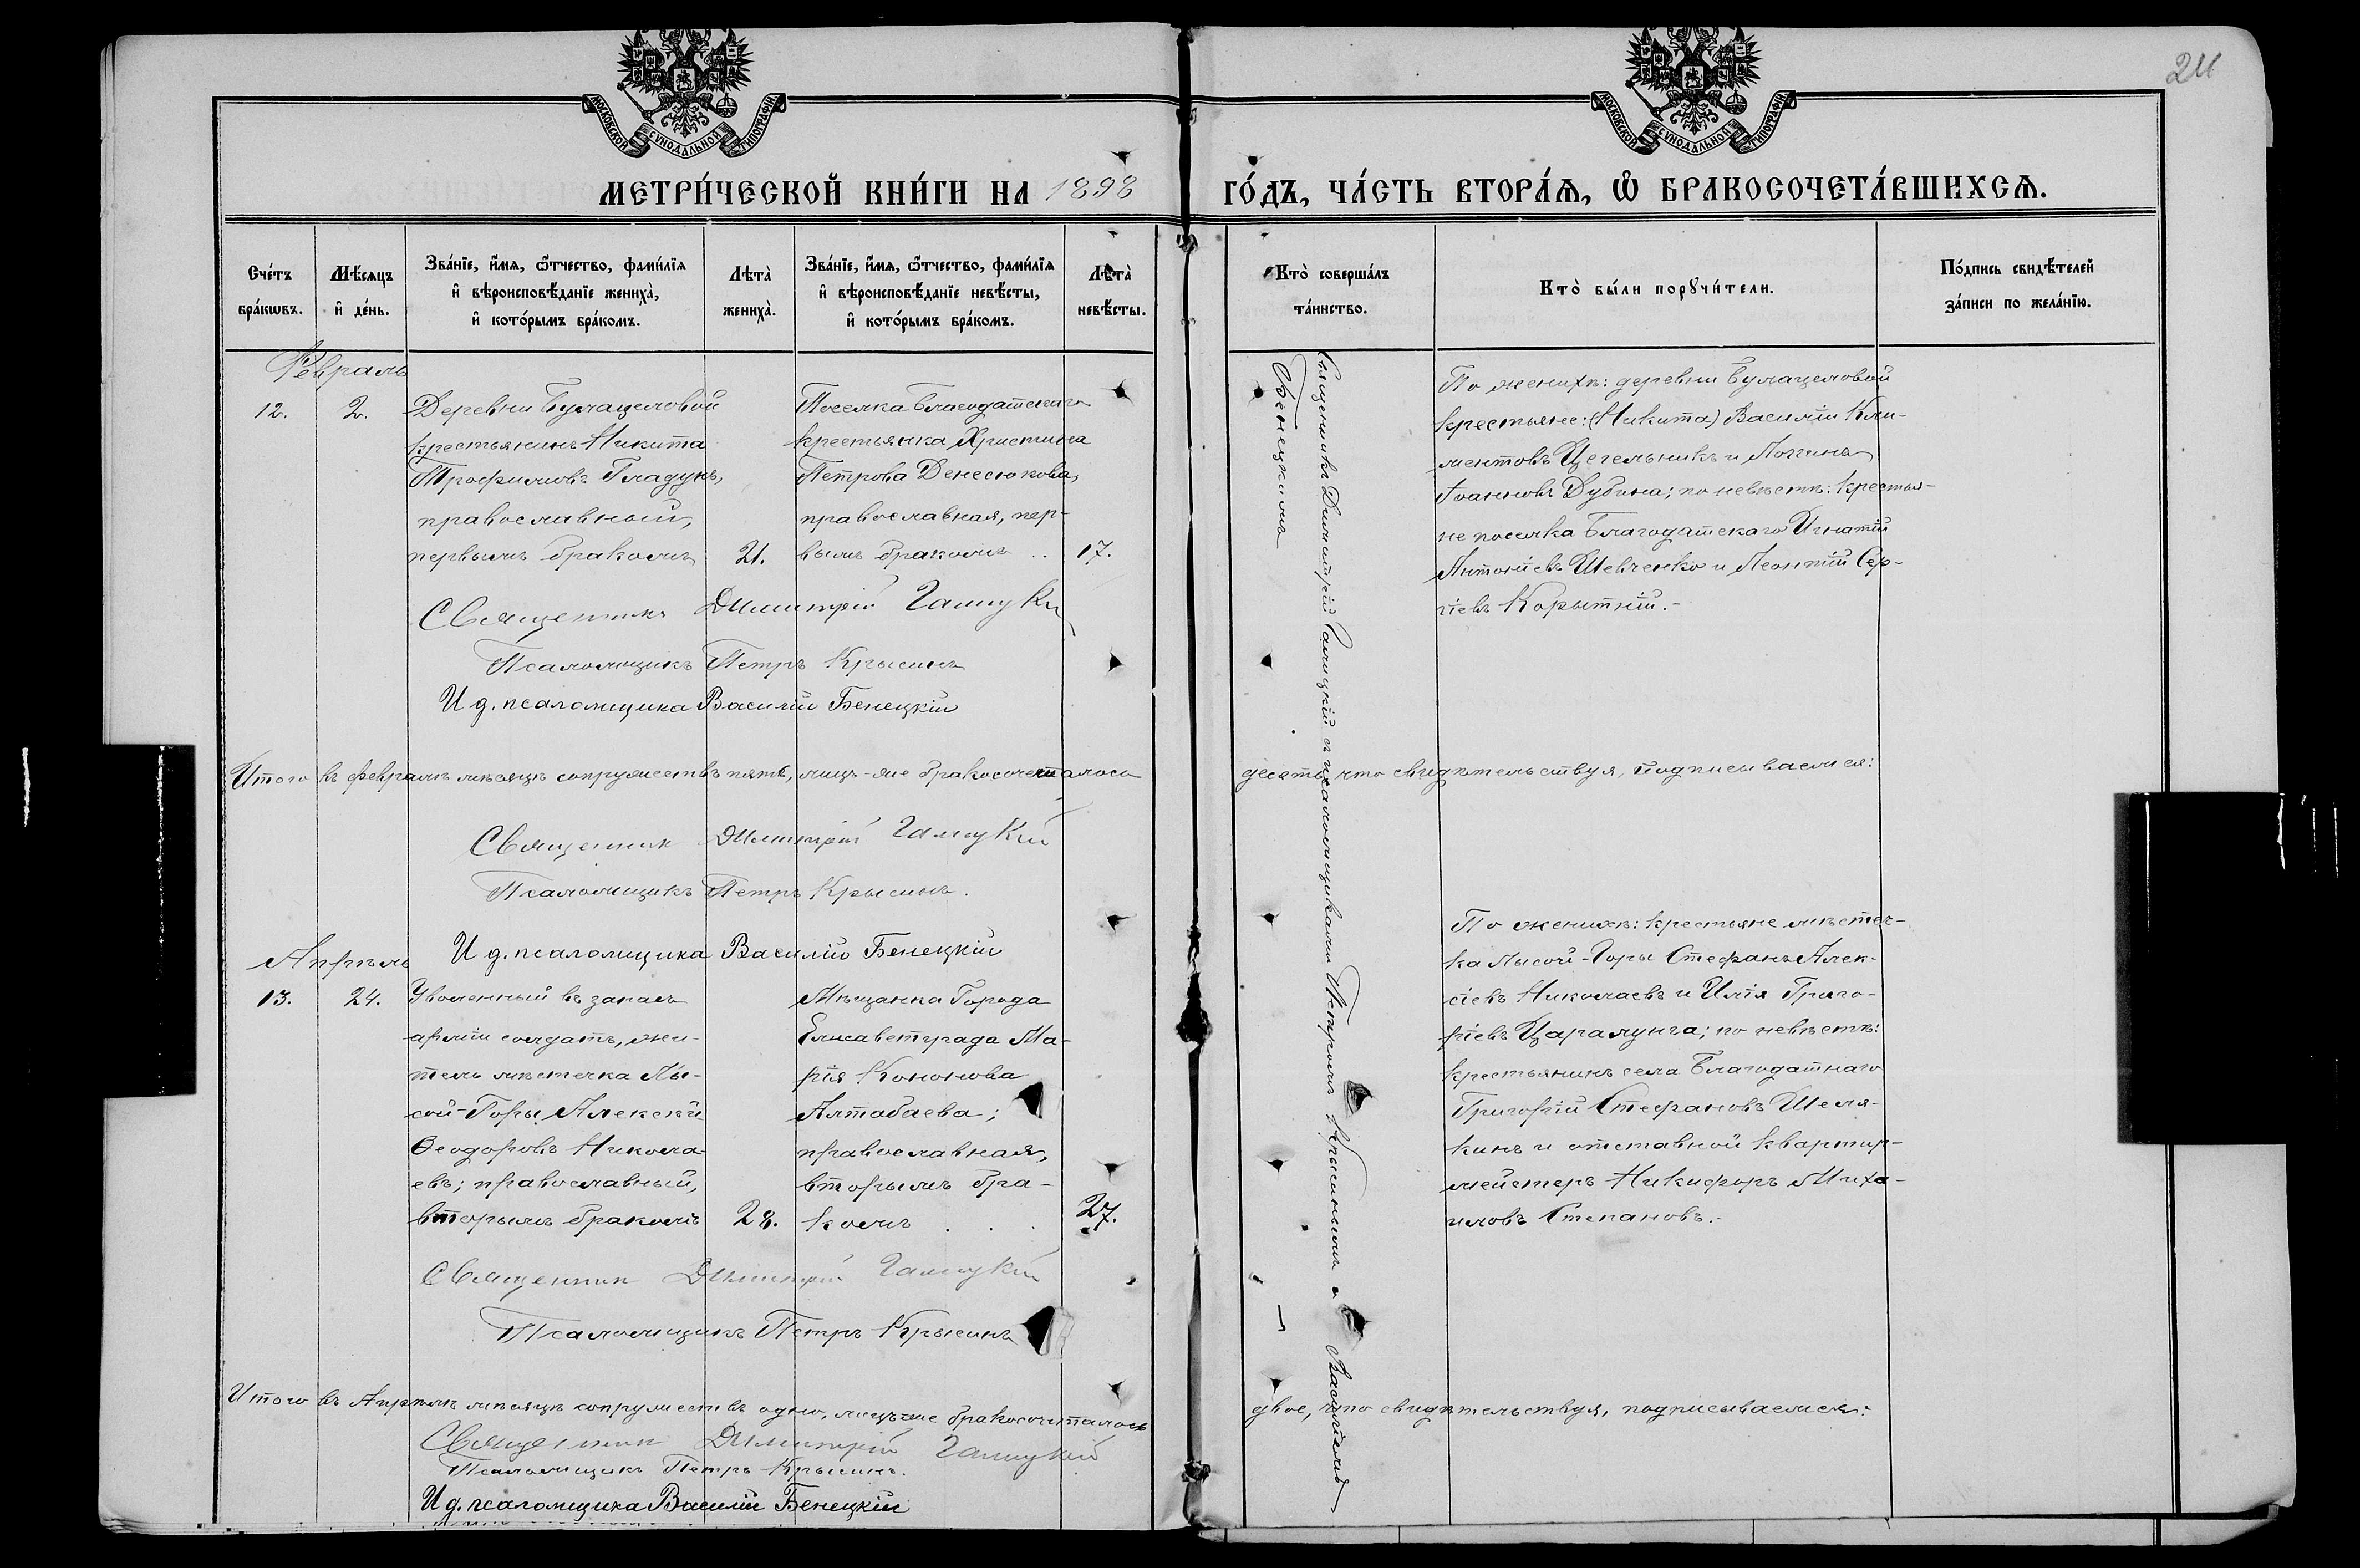 24
МОСКОВСКОЙ СУНОДАЛЬНОЙ ТИПОГРАФІИ.
МОСКОВСКОЙ СУНОДАЛЬНОЙ ТИПОГРАФІИ.
МЕТРИ́ЧЕСКОЙ КНИ́ГИ НА 1898 ГО́ДЪ, ЧА́СТЬ ВТОРА́Ѧ, Ѽ БРАКОСОЧЕТА́ВШИХСѦ.
Сче́тъ
бра́кѡвъ.
Мѣ́сѧцъ
и҆ де́нь.
Зва́нїе, и҆́мѧ, ѻ҆́тчество, фами́лїѧ
и҆ вѣроисповѣ́данїе жениха̀,
и҆ кото́рымъ бра́комъ.
Лѣта̀
жениха̀.
Зва́нїе, и҆́мѧ, ѻ҆́тчество, фами́лїѧ
и҆ вѣроисповѣ́данїе невѣ́сты,
и҆ кото́рымъ бра́комъ.
Лѣта̀
невѣ́сты.
Кто̀ соверша́лъ
та́инство.
Кто̀ бы́ли порꙋчи́тели.
По́дпись свидѣ́телей
за́писи по жела́нїю.
Февраль
12.
2.
Деревни Булацеловой
крестьянинъ Никита
Трофимовъ Гладунъ,
православный,
первымъ бракомъ
21.
Поселка Благодатскаго
крестьянка Христина
Петрова Денесюкова,
православная, пер-
вымъ бракомъ ..
17.
Священникъ Димитрій Галицкій съ псаломщиками Петромъ Крысинымъ и Василіемъ
Бенецкимъ
По женихѣ: деревни Булацеловой
крестьяне: (Никита) Василій Кли-
ментовъ Цегельникъ и Логинъ
Іоанновъ Дубина; по невѣстѣ: крестья-
не поселка Благодатскаго Игнатій
Антоніевъ Шевченко и Леонтій Сер-
гіевъ Корытній.-
Священникъ Димитрій Галицкій
Псаломщикъ Петръ Крысинъ
И д. псаломщика Василій Бенецкій
Итого въ февралѣ мѣсяцѣ супружествъ пять, лицъ-же бракосочеталось десять, что свидѣтельствуя, подписываемся:
Священник Димитрій Галицкій
Псаломщикъ Петръ Крысинъ.
И д. псаломщика Василій Бенецкій
Апрѣль
13.
24.
Уволенный въ запасъ
арміи солдатъ, жи-
тель мѣстечка Лы-
сой-Горы Алексѣй
Ѳеодоровъ Никола-
евъ; православный,
вторымъ бракомъ
28.
Мѣщанка Города
Елисаветграда Ма-
рія Кононова
Алтабаева;
православная,
вторымъ бра-
комъ . . .
27.
По женихѣ: крестьяне мѣстеч-
ка Лысой-Горы Стефанъ Алек-
сіевъ Николаевъ и Илія Григо-
ріевъ Царалунга; по невѣстѣ:
крестьянинъ села Благодатнаго
Григорій Стефановъ Шеля-
кинъ и отставной квартир-
мейстеръ Никифоръ Миха-
иловъ Степановъ.-
Священник Димитрій Галицкій
Псаломщикъ Петръ Крысинъ
Итого въ Апрѣлѣ мѣсяцѣ супружествъ одно, лицъ-же бракосочеталось двое, что свидѣтельствуя, подписываемся:
Священник Димитрій Галицкій
Псаломщикъ Петръ Крысинъ.
И д. псаломщика Василій Бенецкій